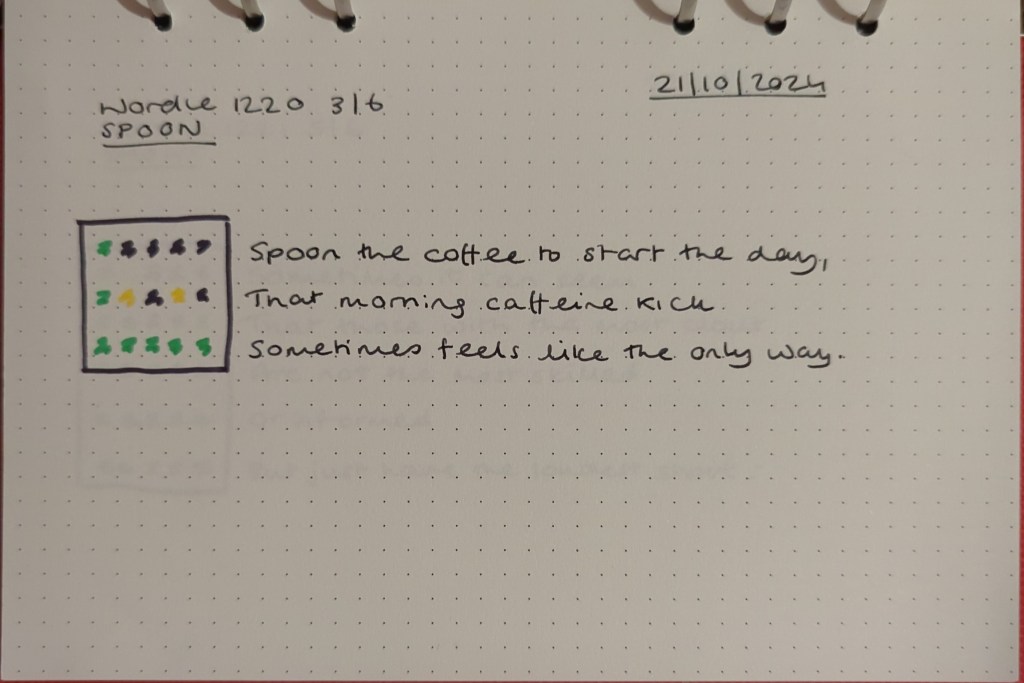 21/10/2024
Wordle 1220 3/6
SPOON
Spoon the coffee to start the day,
That morning caffeine kick
Sometimes feels like the only way.